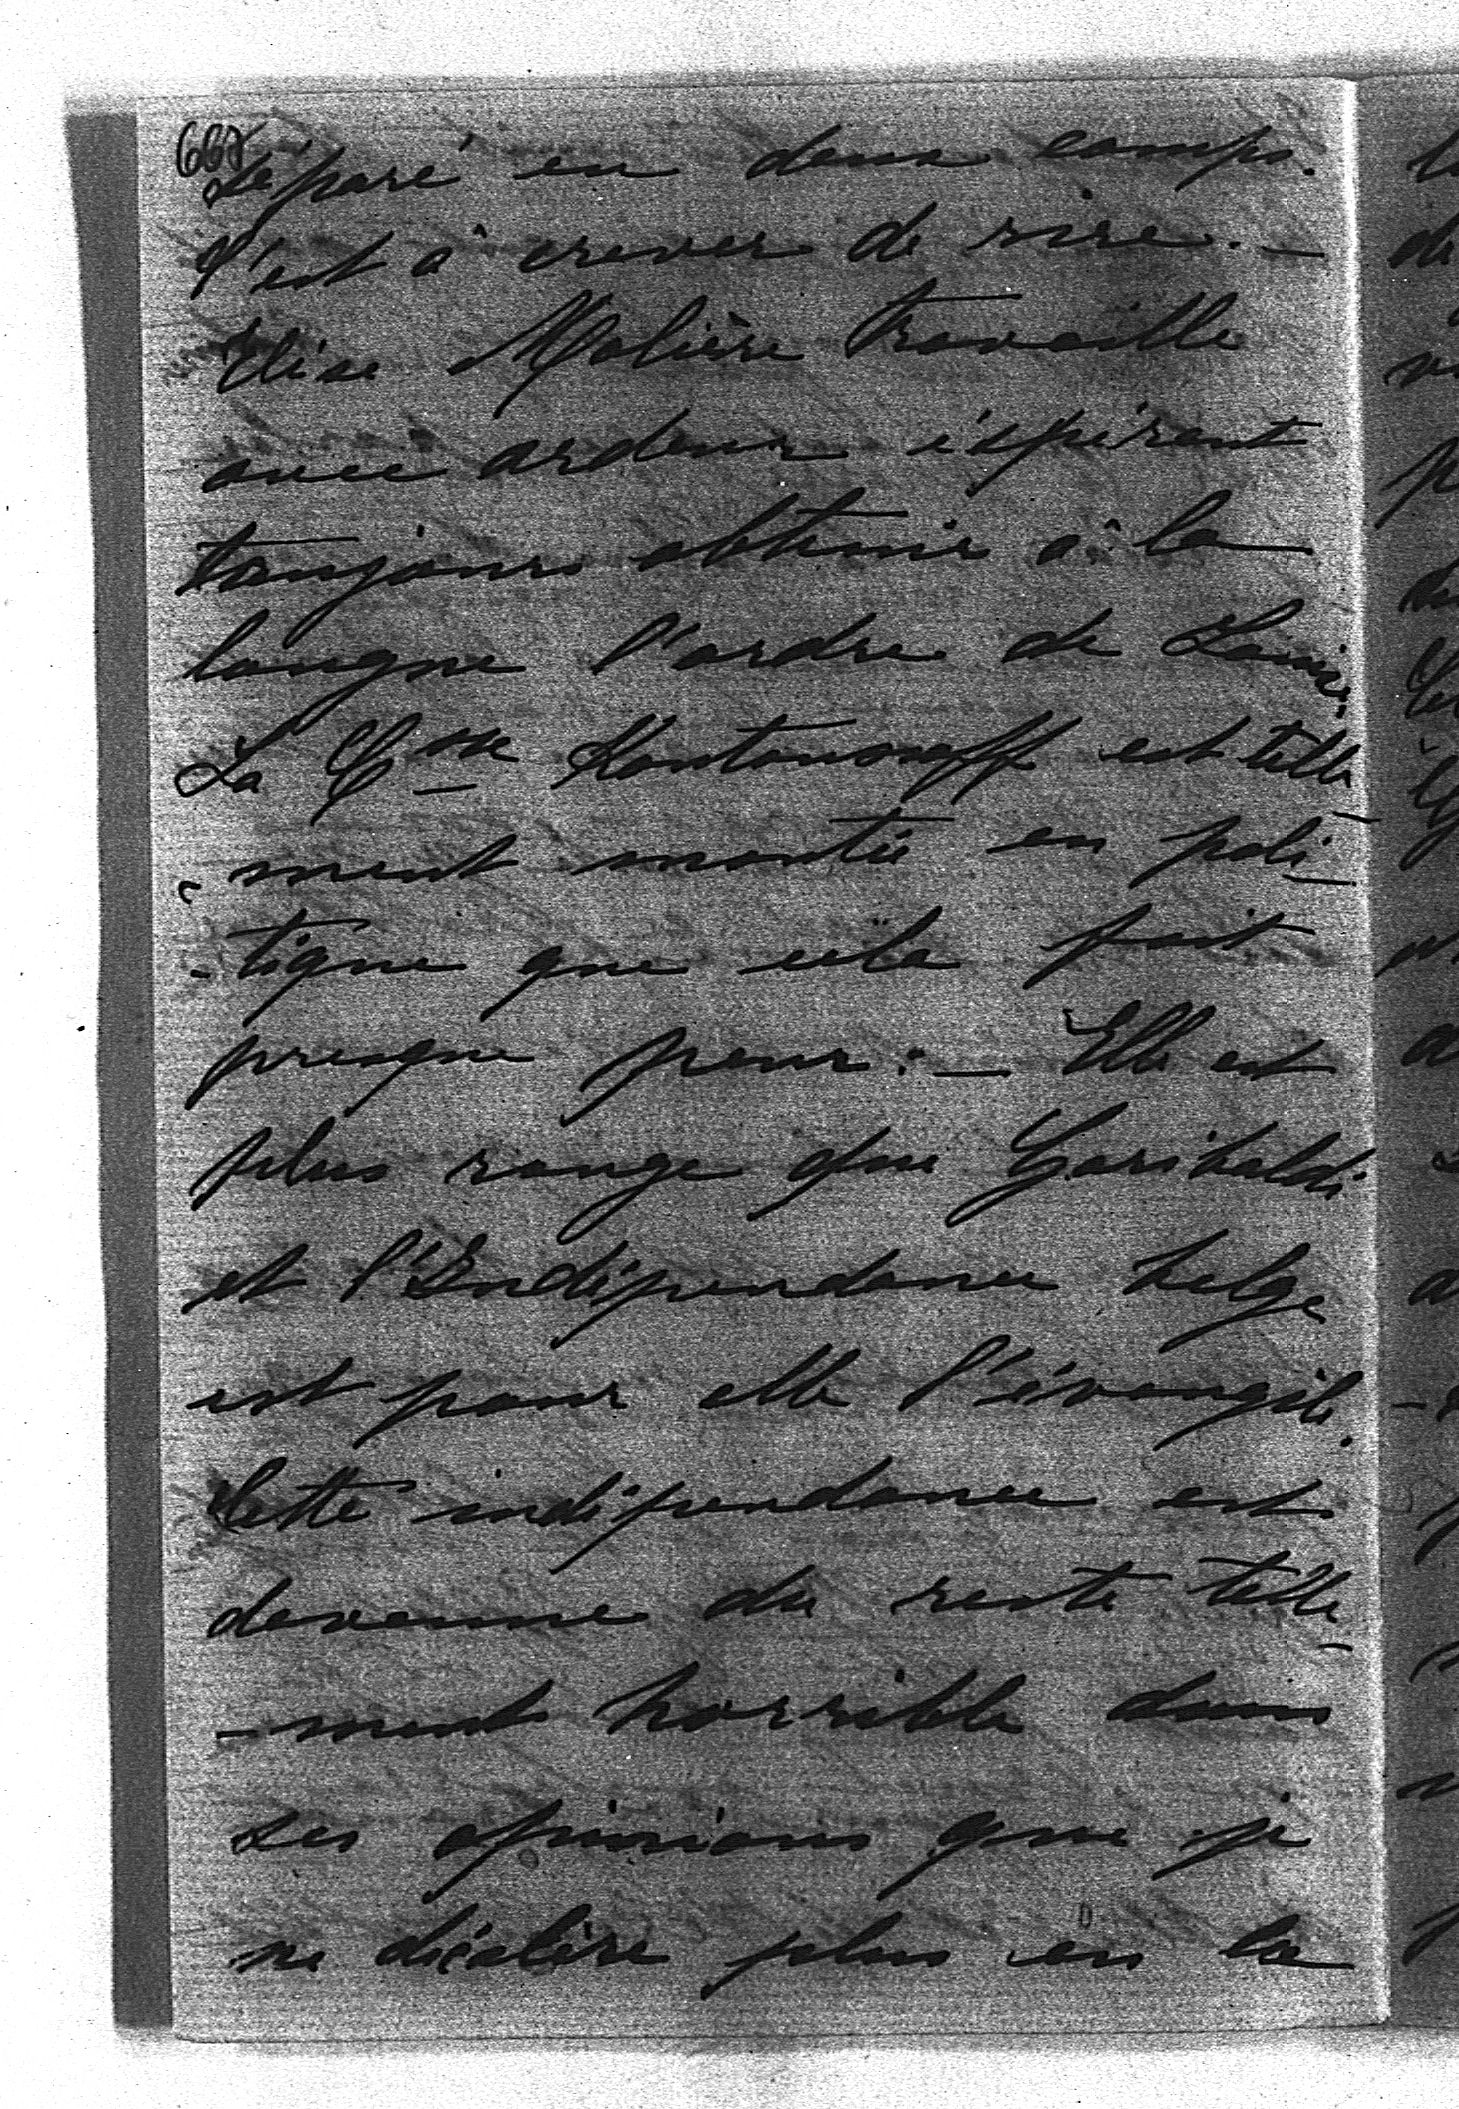 662
séparé en deux camps.
C'est à crever de rire. –
Elise Molière travaille
avec ardeur éspérant
toujours obtenir à la
longue l'ordre de Louise.
La Csse Koutousouff est telle-
-ment montée en poli-
-tique que cela fait
presque peur : – Elle est
plus rouge que Garibaldi
et l'Indépendance belge
est pour elle l'évangile.
Cette indépendance est
devenue du reste telle-
-ment horrible dans
ses opinions que je
ne décolère plus en la